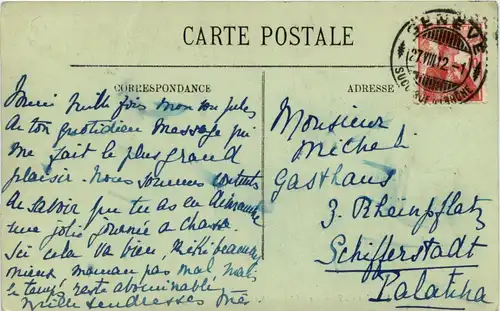 CARTE POSTALE
GENÈVE
27.VIII.12.-1
CORRESPONDANCE
ADRESSE
Merci mille fois mon
de ton quotidien message qui
me fait le plus grand
plaisir. Nous sommes contents
de savoir que tu as eu dimanche
une jolie journée de chasse.
Ici cela va bien, Kiki beaucoup
mieux, maman pas mal, mais
le temps reste abominable
Mille tendresses
Monsieur
Michel
Gasthaus
3. Rheinpfalz
Schifferstadt
Palatina